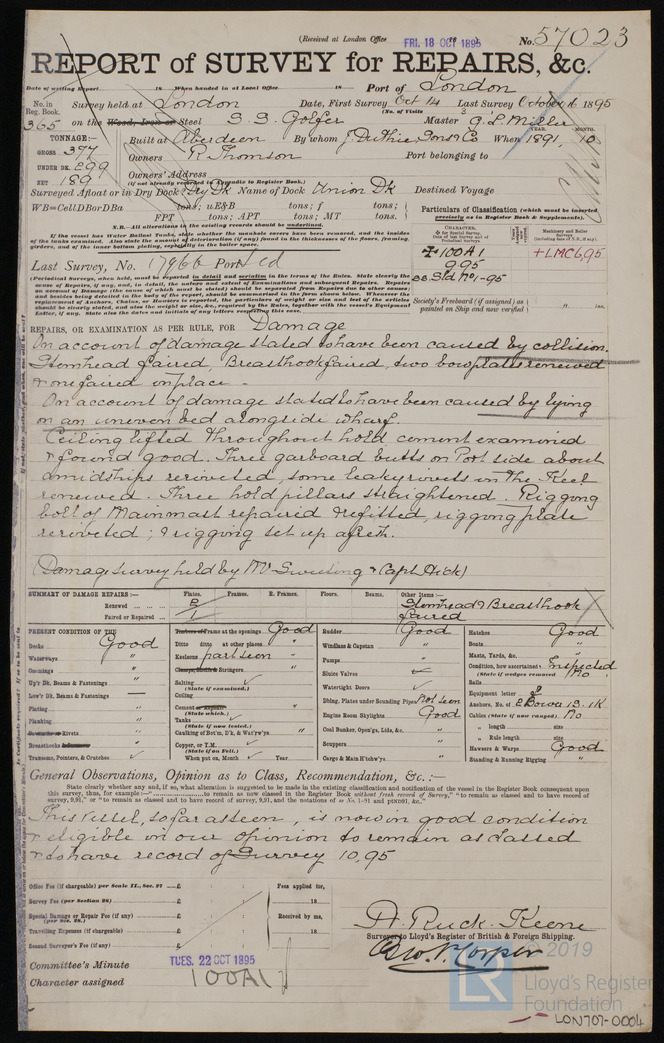 (Received at London Office FRI. 18 OCT 1895
No. 57023
REPORT of SURVEY for REPAIRS, &c.
Date of writing Report 18 When handed in at Local Office 18 Port of London
No. in Reg. Book. Survey held at London Date, First Survey Oct 14 Last Survey October 16 1895
(No. of Visits 3
365 on the Wood, Iron or Steel S.S. Golfer Master G. L. Miller
TONNAGE:— Built at Aberdeen By whom J. Duthie Sons & Co When 1891, 10
YEAR. MONTH.
GROSS 377 Owners R Thomson Port belonging to
UNDER DK. 299 Owners' Address
(if not already recorded in Appendix to Register Book.)
NET 189
Surveyed Afloat or in Dry Dock? Dry Dk Name of Dock Union Dk Destined Voyage
WB=CellDBorDBa tons; uE&B tons; f tons;
FPT tons; APT tons; MT tons.
N.B.—All alterations in the existing records should be underlined.
If the vessel has Water Ballast Tanks, state whether the manhole covers have been removed, and the insides
of the tanks examined. Also state the amount of deterioration (if any) found in the thicknesses of the floors, framing,
girders, and of the inner bottom plating, especially in the boiler space.
Particulars of Classification (which must be inserted
precisely as in Register Book & Supplements).
CHARACTER.
Machinery and Boiler Surveys
+100A1
9,95
SS Sld No 1-95
+LMC 6,95
Society's Freeboard (if assigned) as
painted on Ship and now verified ft. ins.
Last Survey, No. 17966 Port Sld
(Periodical Surveys, when held, must be reported in detail and seriatim in the terms of the Rules. State clearly the
cause of Repairs, if any, and, in detail, the nature and extent of Examinations and subsequent Repairs. Repairs
on account of Damage (the cause of which must be stated) should be separated from Repairs due to other causes;
and besides being detailed in the body of the report, should be summarised in the form shewn below.
REPAIRS, OR EXAMINATION AS PER RULE, FOR Damage
On account of damage stated to have been caused by collision.
Stemhead faired, Breasthook faired, two bow plates renewed
& one faired in place –
On account of damage stated to have been caused by lying
on an uneven bed alongside wharf.
Ceiling lifted throughout hold cement examined
& found good. Three garboard butts on Port side about
amidships reriveted, some leaky rivets in the Keel
renewed. Three hold pillars straightened. Rigging
bolt of Mainmast repaired & refitted, rigging plate
reriveted; & rigging set up afresh.
(Damage Survey held by Mr Sweeting & Capt Hick)
SUMMARY OF DAMAGE REPAIRS:— Plates. Frames. R. Frames. Floors. Beams. Other Items:—
Renewed 2 Stemhead & Breasthook
Faired or Repaired 1 faired
PRESENT CONDITION OF THE Good Timbers of Frame at the openings Good Rudder Good Hatches Good
Decks Ditto ditto at other places " Windlass & Capstan " Boats "
Waterways " Keelsons part seen – Pumps " Masts, Yards, &c. "
Comings " Clamps, Shelfs & Stringers " Sluice Valves Condition, how ascertained Inspected
Up'r Dk. Beams & Fastenings " Salting ✓ (State if wedges removed No
(State if examined.)
Low'r Dk. Beams & Fastenings — Ceiling Watertight Doors ✓ Sails
Plating " Cement or Asphalte Dblng. Plates under Sounding Pipes Not seen Equipment letter
(State which.)
Planking Tanks ✓ Engine Room Skylights Good Anchors, No. of 2 Bower 1S. 1K
(State if now tested.)
Treenails or Rivets " Caulking of Bot'm, D'k, & Wat'rw'ys Coal Bunker, Open'gs, Lids, &c. " Cables (State if now ranged) No
Breasthooks " Copper, or Y.M. Scuppers " " length size
(State if on Felt.)
Transoms, Pointers, & Crutches ✓ When put on, Month Year Cargo & Main H'tchw'ys " " Rule length size
Hawsers & Warps Good
Standing & Running Rigging "
General Observations, Opinion as to Class, Recommendation, &c. :—
State clearly whether any, and if so, what alteration is suggested to be made in the existing classification and notification of the vessel in the Register Book consequent upon
this survey, thus, for example:—" to remain as now classed in the Register Book without fresh record of Survey," "to remain as classed and to have record of
survey, 9,91," or "to remain as classed and to have record of survey, 9,91, and the notations of ss No. 1-91 and ptND91, &c."
This vessel, so far as seen, is now in good condition
& eligible in our opinion to remain as classed
& to have record of Survey 10,95
Office Fee (if chargeable) per Scale II., Sec. 27 £ : : Fees applied for,
Survey Fee (per Section 28) £ : : 18
Special Damage or Repair Fee (if any) £ : : Received by me,
(per Sec. 28.)
Travelling Expenses (if chargeable) £ : : 18
Second Surveyor's Fee (if any) £ : :
A. Ruck Keene
Surveyor to Lloyd's Register of British & Foreign Shipping.
Committee's Minute TUES. 22 OCT 1895
Character assigned 100A1
© 2019
LR
Lloyd's Register
Foundation
LON707-0004